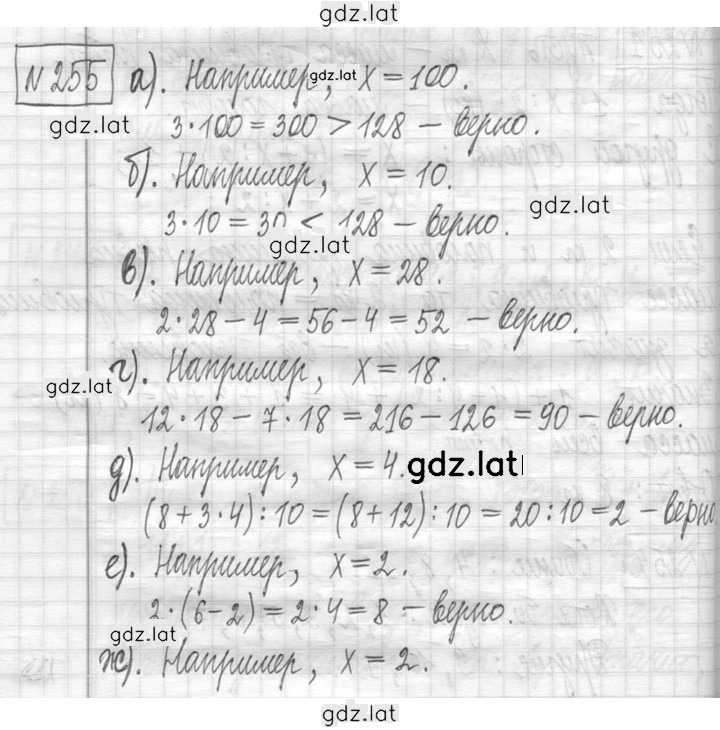 gdz.lat
№ 255 а). Например, gdz.lat х = 100.
gdz.lat
3·100 = 300 > 128 – верно.
б). Например, х = 10.
gdz.lat
3·10 = 30 < 128 – верно.
gdz.lat
в). Например, х = 28.
2·28 – 4 = 56 – 4 = 52 – верно.
г). Например, х = 18.
gdz.lat
12·18 – 7·18 = 216 – 126 = 90 – верно.
д). Например, х = 4. gdz.lat
(8 + 3·4) : 10 = (8 + 12) : 10 = 20 : 10 = 2 – верно
е). Например, х = 2.
2·(6 – 2) = 2·4 = 8 – верно.
gdz.lat
ж). Например, х = 2.
gdz.lat